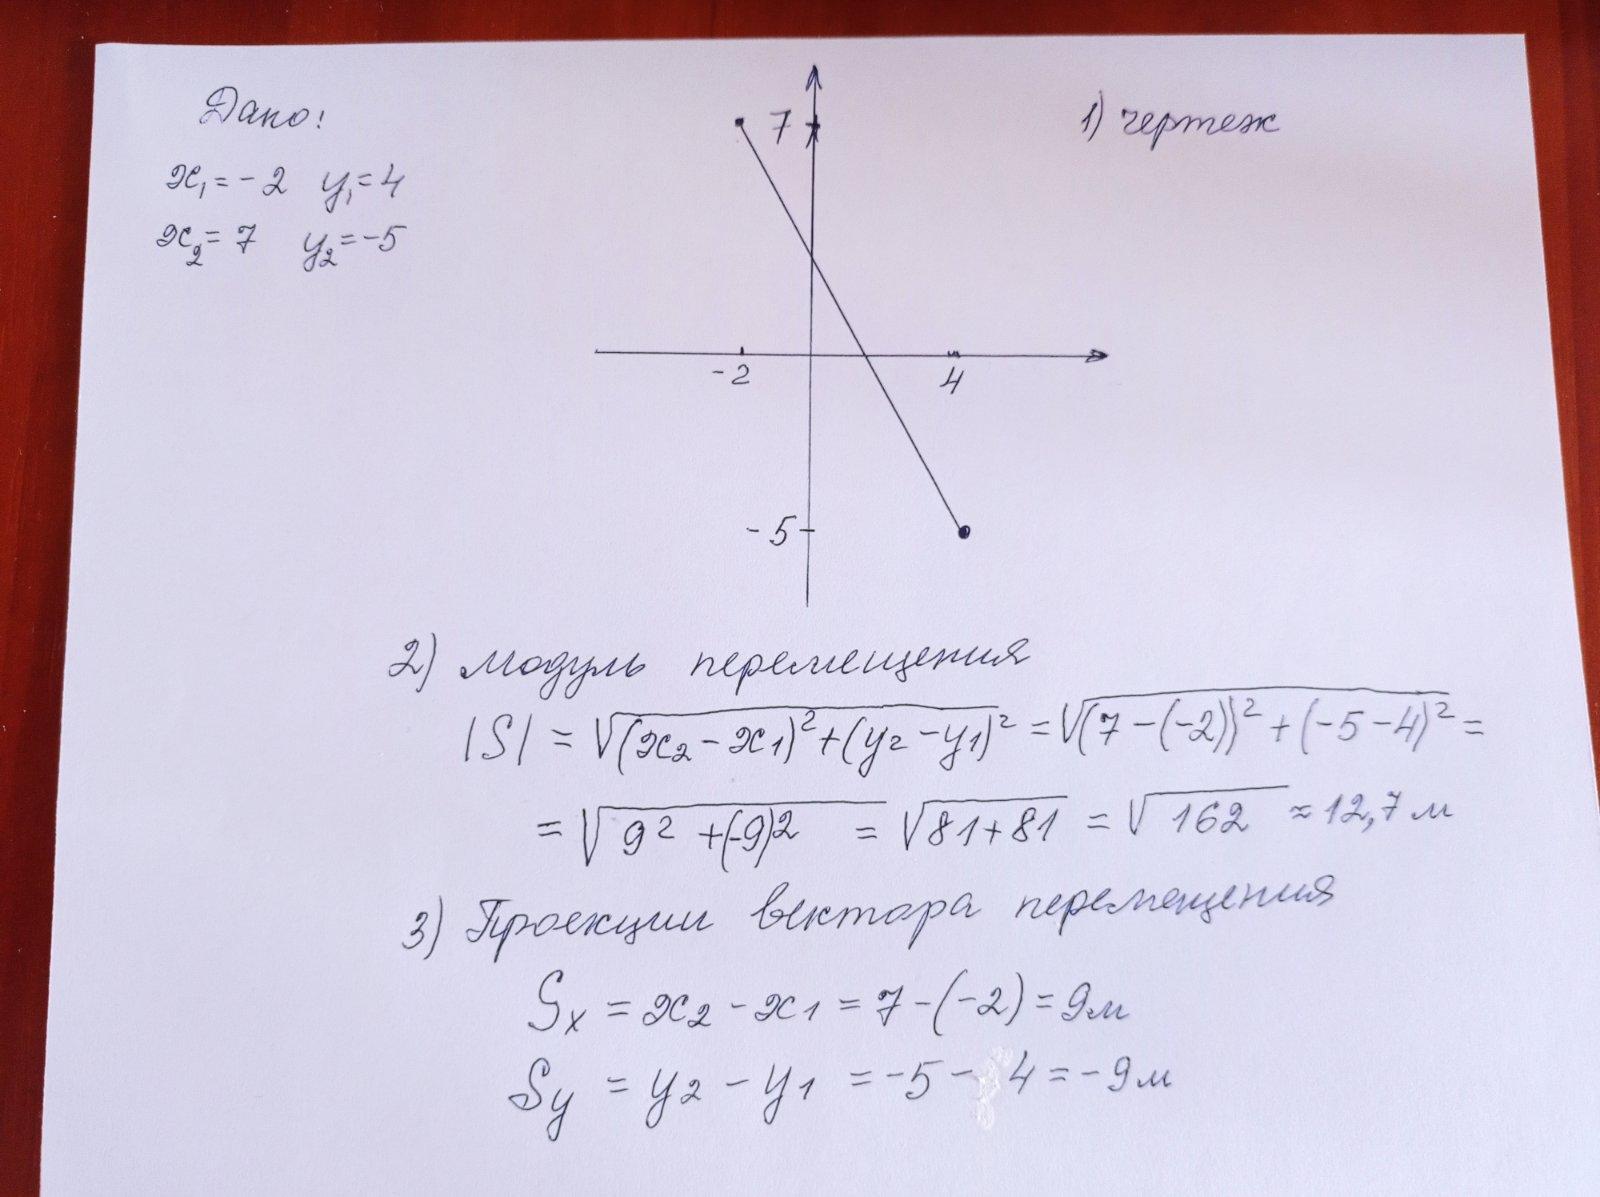 Дано:
1) чертеж
x₁ = -2 y₁ = 4
x₂ = 7 y₂ = -5
7
-2 4
-5
2) модуль перемещения
|S| = √(x₂ - x₁)² + (y₂ - y₁)² = √(7 - (-2))² + (-5 - 4)² =
= √9² + (-9)² = √81 + 81 = √162 ≈ 12,7 м
3) Проекции вектора перемещения
Sx = x₂ - x₁ = 7 - (-2) = 9 м
Sy = y₂ - y₁ = -5 - 4 = -9 м